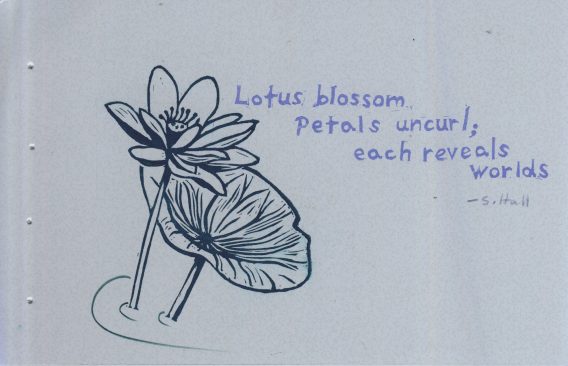 Lotus blossom
Petals uncurl;
each reveals
worlds
-S. Hall